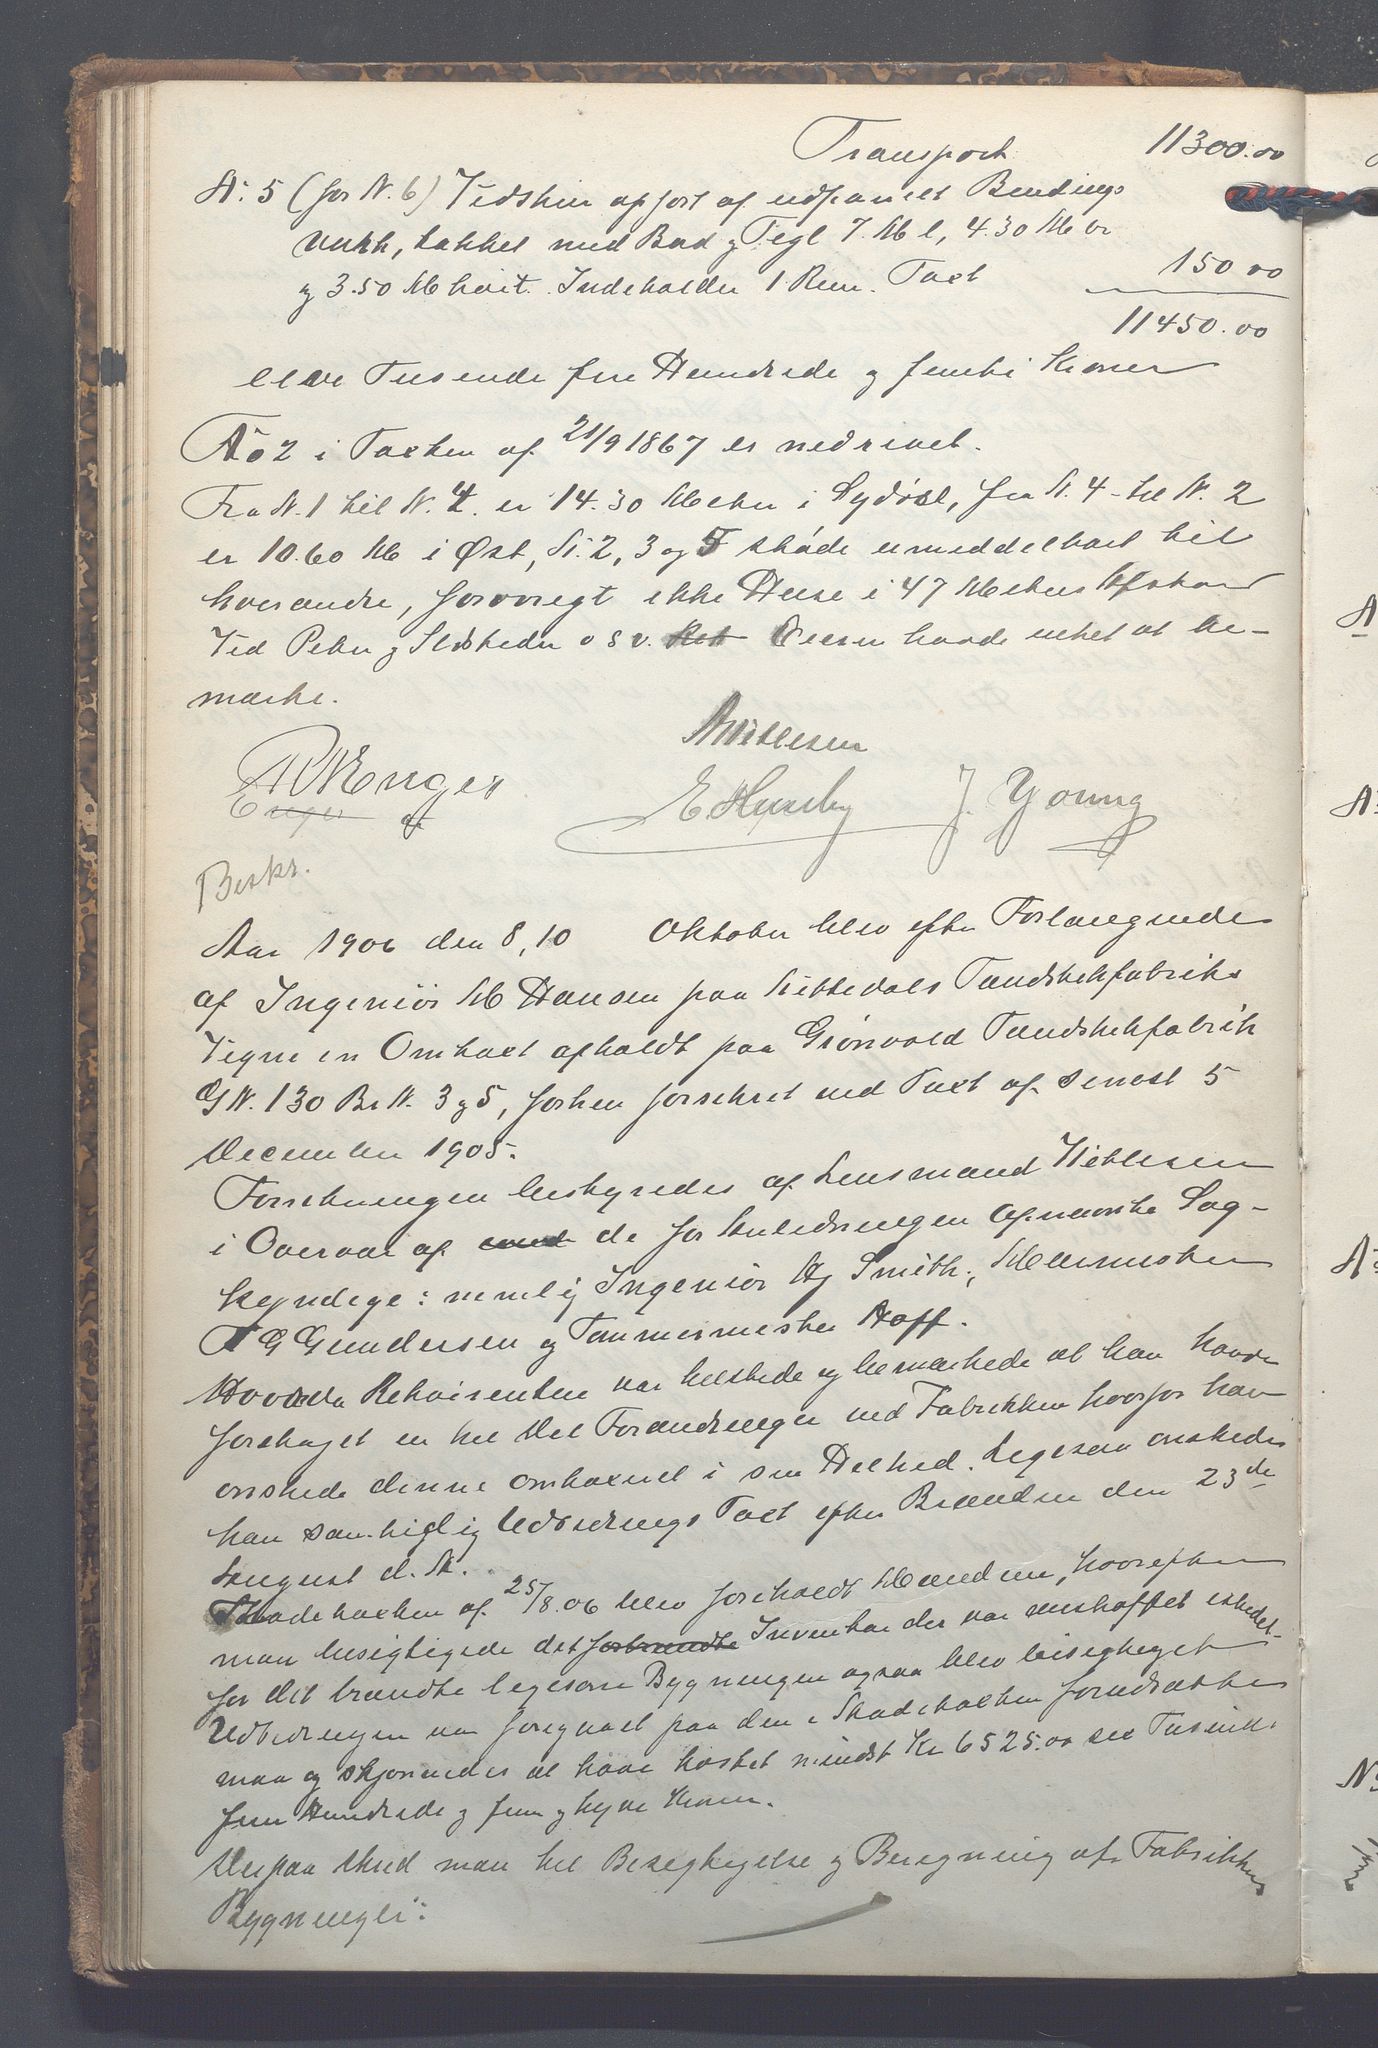 Transport 11300.00
N. 5 (før N. 6) Vedskur opført af udpanelt Bindings
værk, tækket med Bord og Tegl 7. M l, 4.30 M br
og 3.50 M høit. Indeholder 1 Rum. Taxt 150 00
11450.00
elleve Tusende fire Hundrede og femti Kroner
No 2 i Taxten af 21/9 1867 er nedrevet.
Fra N. 1 til N. 4. er 14.30 Meter i Sydøst, fra N. 4 til N. 2
er 10.60 M i Øst, N. 2, 3 og 5 støde umiddelbart til
hverandre, forøvrigt ikke Huse i 47 Meters Afstand
Ved Peber og Ildsteder o s v. havde intet at be-
mærke.
Kittlesen
Enger E. Husby J. Young
Beskr.
Aar 1906 den 8, 10 Oktober blev efter Forlangende
af Ingeniør M Hansen paa Nitedals Tændstikfabriks
Vegne en Omtaxt afholdt paa Grønvold Tændstikfabrik
G N. 130 Br N. 3 og 5, forhen forsikret ved Taxt af senest 5
December 1905.
Forretningen bestyredes af Lensmand Kittlesen
i Overvær af de for Anledningen opnævnte Sag-
kyndige: nemlig Ingeniør Hj Smith, Murmester
T G Gundersen og Tømmermester Hoff.
Hovedrekvirenten var tilstede og bemærkede at han havde
foretaget en hel Del Forandringer ved Fabrikken hvorfor han
ønskede denne omtaxeret i sin Helhed. Ligesaa ønskedes
han samtidig Udbedrings Taxt efter Branden den 23de
August d. A.
Skadetaxten af 25/8.06 blev foreholdt Mændene, hvorefter
man besigtigede det forbrændte Inventar der var anskaffet istedet-
for det brændte ligesom Bygningen ogsaa blev besigtiget
Udbedringen var foregaaet paa den i Skadetaxten forudsatte
maa og skjønnedes at have kostet mindst Kr 6525.00 sex Tusinde
fem Hundrede og fem og tyve Kroner.
Derpaa skred man til Besigtigelse og Beregning af Fabrikkens
Bygninger: